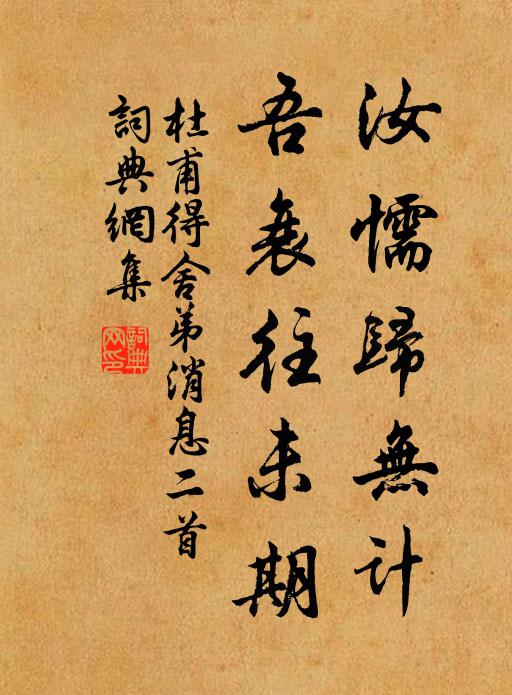 汝懦歸無計
吾衰往未期
杜甫得舍弟消息二首
詞典網集
詞典
网印